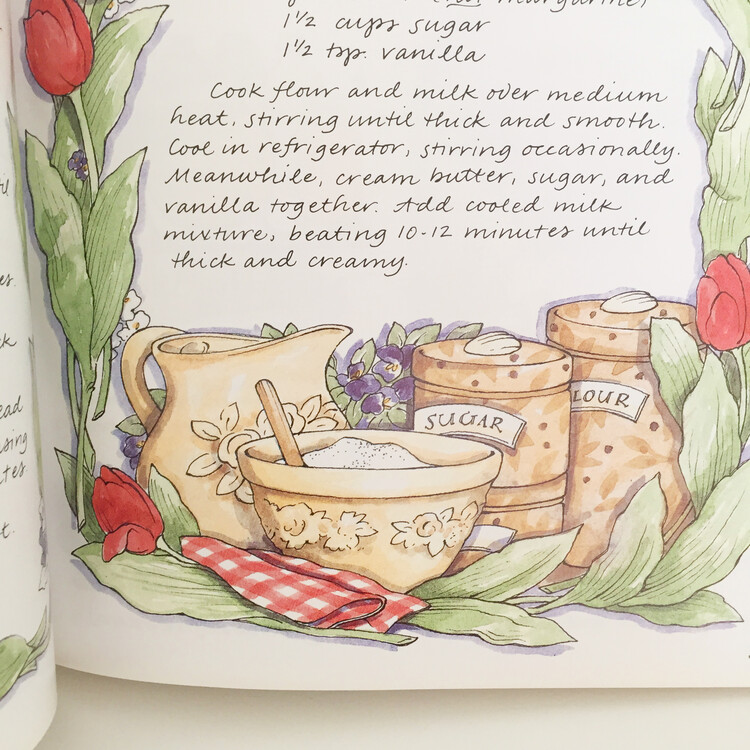 margarine)
1½ cups sugar
1½ tsp. vanilla
Cook flour and milk over medium
heat, stirring until thick and smooth.
Cool in refrigerator, stirring occasionally.
Meanwhile, cream butter, sugar, and
vanilla together. Add cooled milk
mixture, beating 10-12 minutes until
thick and creamy.
SUGAR
LOUR